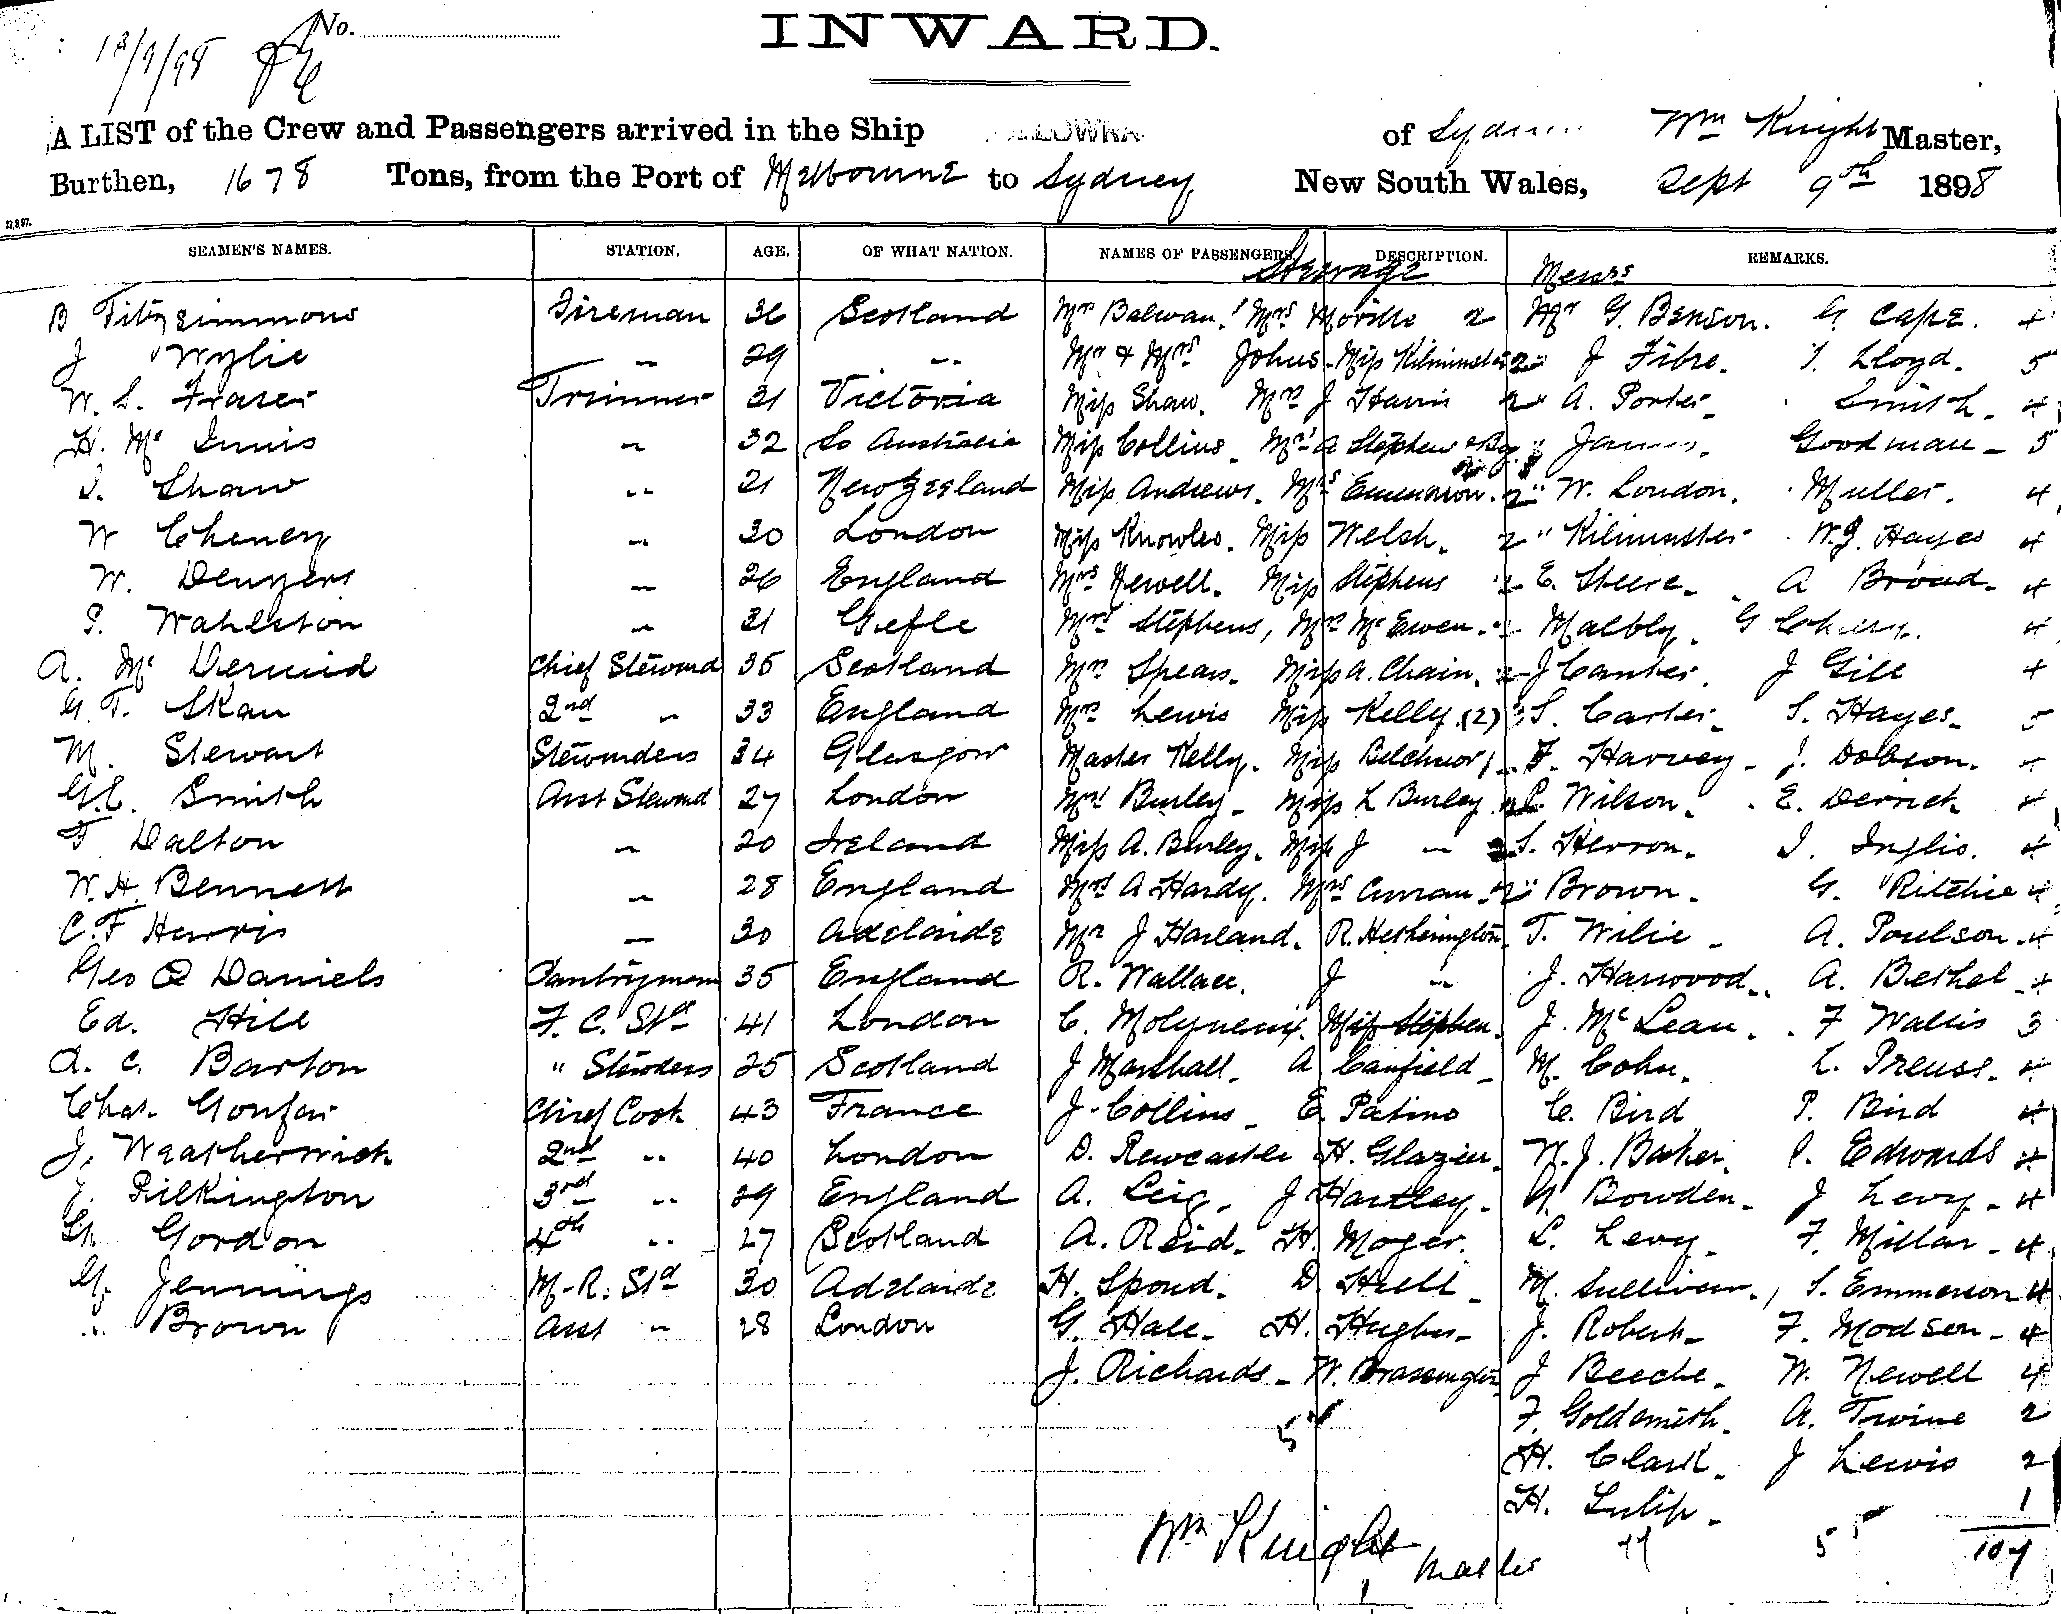 12/9/98 No.
INWARD.
A LIST of the Crew and Passengers arrived in the Ship of Sydney Wm Knight Master,
Burthen, 1678 Tons, from the Port of Melbourne to Sydney New South Wales, Sept 9th 1898
SEAMEN'S NAMES. STATION. AGE. OF WHAT NATION. NAMES OF PASSENGERS DESCRIPTION. REMARKS.
Steerage Messrs
B Fitzsimmons Fireman 36 Scotland Mr Balwan. Mrs Moville 2 Mr G. Benson. G. Cape. 4
J Wylie " 29 " Mr & Mrs Johns - Miss Kilminster 2 " J Fibre. T. Lloyd. 5
W. L. Fraser Trimmer 31 Victoria Miss Shaw. Mrs J Harris 2 " A. Porter - Smith - 4
H. Mc Innis " 32 So Australia Miss Collins - Mrs A Stephens & Boy " James. Goodman - 5
I. Shaw " 21 New Zealand Miss Andrews. Mrs Emmerson. 2 " W. London. Muller. 4
W Cheney " 30 London Miss Knowles. Miss Welsh. 2 " Kilminster W.J. Hayes 4
W. Denyers " 26 England Mrs Newell. Miss Stephens 2 E. Steere - A Broud - 4
P. Wahlston " 31 Gefle Mrs Stephens, Mrs McEwen. 2 Maebly. G Chery. 4
A. Mc Dermid Chief Steward 35 Scotland Mrs Spears. Miss A. Chain. 2 J Canter. J Gill 4
G. T. Skan 2nd " 33 England Mrs Lewis Miss Kelly (2) 3 S. Carter - S. Hayes - 5
M. Stewart Stewardess 34 Glasgow Master Kelly. Miss Belchior F. Harvey - J. Dobson. 4
G.C. Smith Asst Steward 27 London Mrs Burley - Miss L Burley Wilson. E. Derrick 4
F Dalton " 20 Ireland Miss A. Burley. Miss J " S. Herron. I. Inglis. 4
W. H. Bennett " 28 England Mrs A Hardy. Mrs Curran - 2 " Brown. G. Ritchie 4
C. F Harris " 30 Adelaide Mr J Harland. R. Hetherington. T. Wilie - A. Poulson. 4
Geo Q Daniels Pantryman 35 England R. Wallace. J " J. Harwood. A. Bethel 4
Ed. Hill F. C. Std 41 London C. Molyneux. Miss Stephen. J. McLean. F Wallis 3
A. C. Barton " Stwdess 25 Scotland J Marshall. A Canfield - M. Cohn. L. Preuss. 4
Chas. Gonfar Chief Cook 43 France J. Collins - E Patino C. Bird P. Bird 4
J. Weatherwick 2nd " 40 London D. Rewcastle H. Glazier. W. J. Baker. P. Edwards 4
J. Pilkington 3rd " 29 England A. Leig. J Hartley. A. Bowden. J Levy - 4
Gordon 4th " 27 Scotland A. Reid. H. Moger. L. Levy. F. Millar - 4
G. Jennings M-R. Std 30 Adelaide H. Spond. D. Hull - M. Sullivan. S. Emmerson 4
Brown Asst " 28 London G. Hale - H. Hughes - J. Roberts - F. Modsen - 4
J. Richards - W. Brassington J Beeche. W. Newell 4
F. Goldsmith. A. Twine 2
H. Clark. J Lewis 2
H. Tulip. 1
Wm Knight Master 107